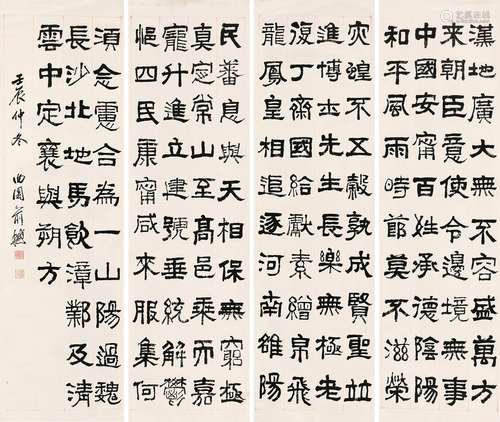 漢地廣大無不容盛萬方
來朝臣意使令邊境無事
中國安甯百姓承德陰陽
和平風雨時節莫不滋榮
灾蝗不五穀孰成賢聖並
進博士先生長樂無極老
復丁齋國給獻素繒帛飛
龍鳳皇相追逐河南雒陽
民蕃息與天相保無窮極
真定常山至高邑乘而嘉
寵升進立建號垂統解鬱
悒四民康甯咸來服集何
須念慮合為一山陽過魏
長沙北地馬飲漳鄴及清
雲中定襄與朔方
壬辰仲冬 曲園俞樾